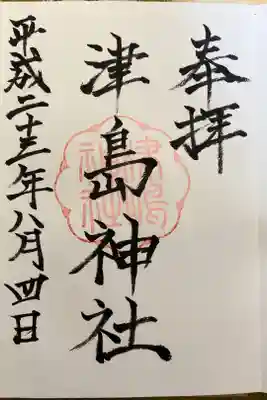 奉拝
津島神社
平成二十三年八月四日
津嶋
神社